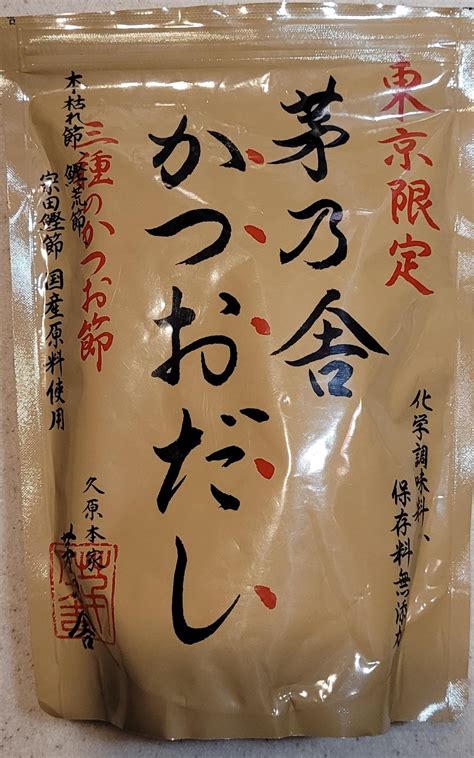 東京限定
茅乃舎
かつおだし
化学調味料、
保存料無添加
三種のかつお節
本枯れ節、鰹荒節
宗田鰹節 国産原料使用
久原本家
茅乃舎